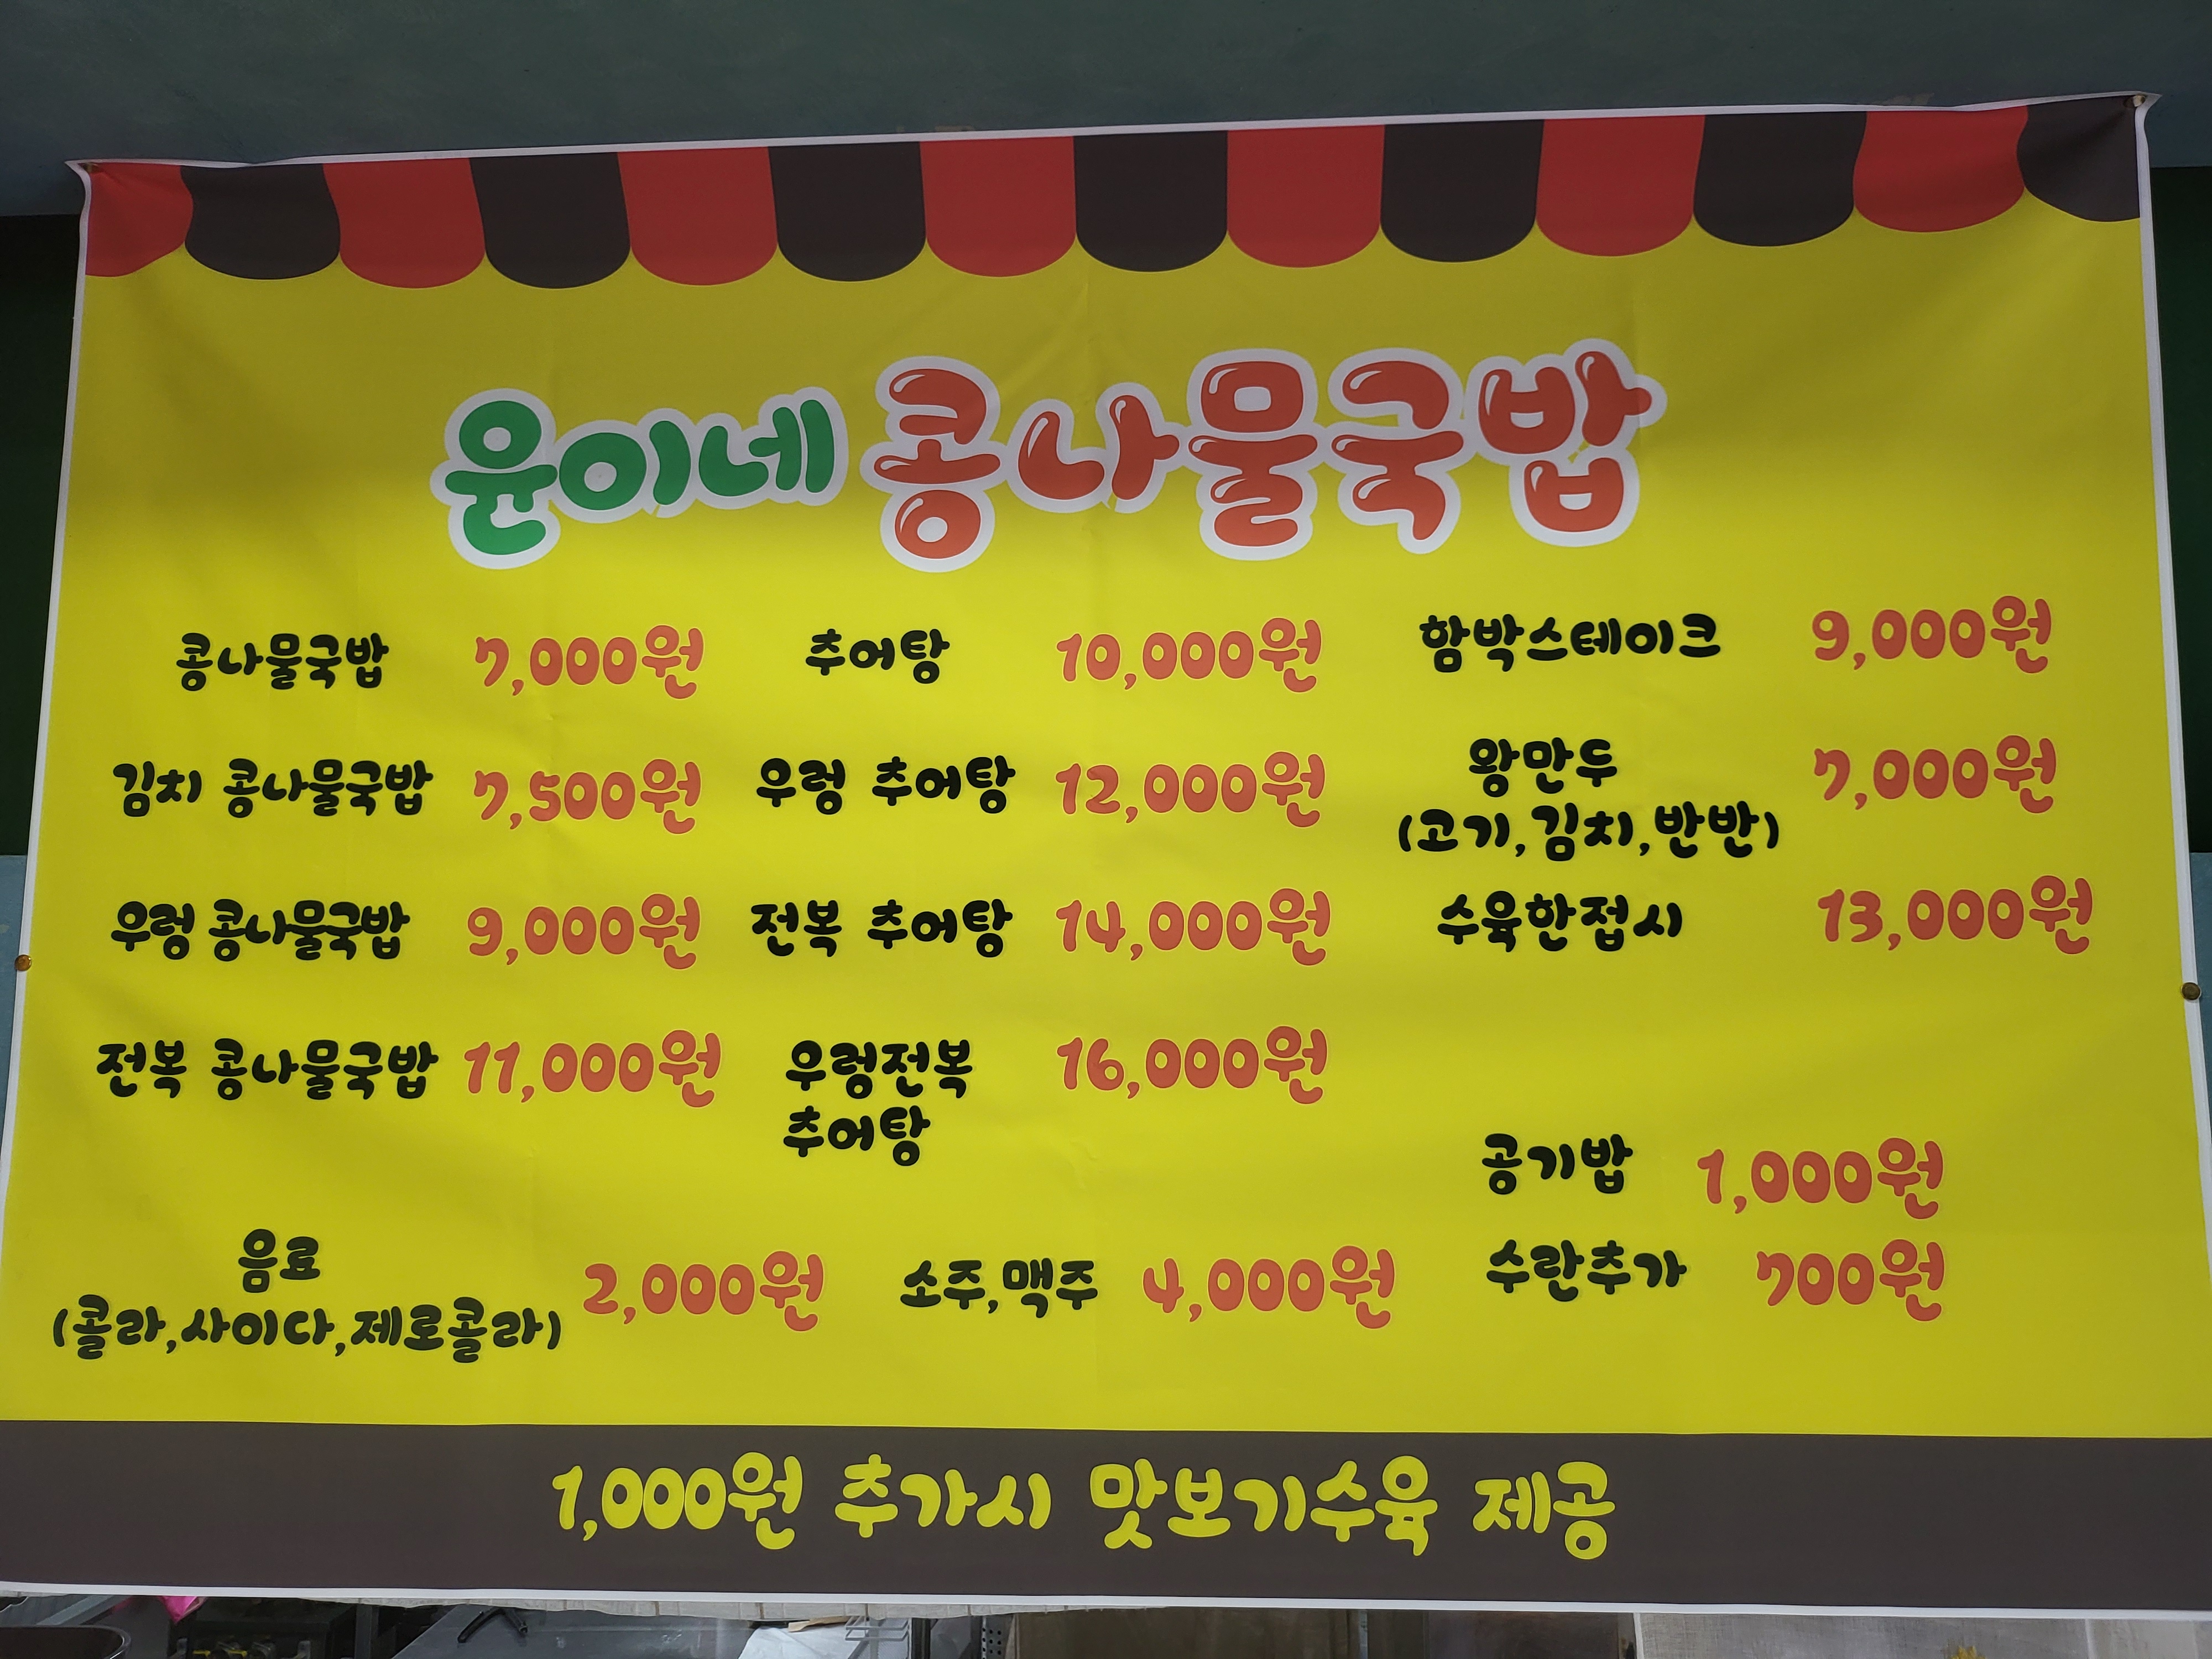 윤이네 콩나물국밥
콩나물국밥 7,000원 추어탕 10,000원 함박스테이크 9,000원
김치 콩나물국밥 7,500원 우렁 추어탕 12,000원 왕만두 7,000원
(고기,김치,반반)
우렁 콩나물국밥 9,000원 전복 추어탕 14,000원 수육한접시 13,000원
전복 콩나물국밥 11,000원 우렁전복 16,000원
추어탕
공기밥 1,000원
음료
(콜라,사이다,제로콜라) 2,000원 소주,맥주 4,000원 수란추가 700원
1,000원 추가시 맛보기수육 제공